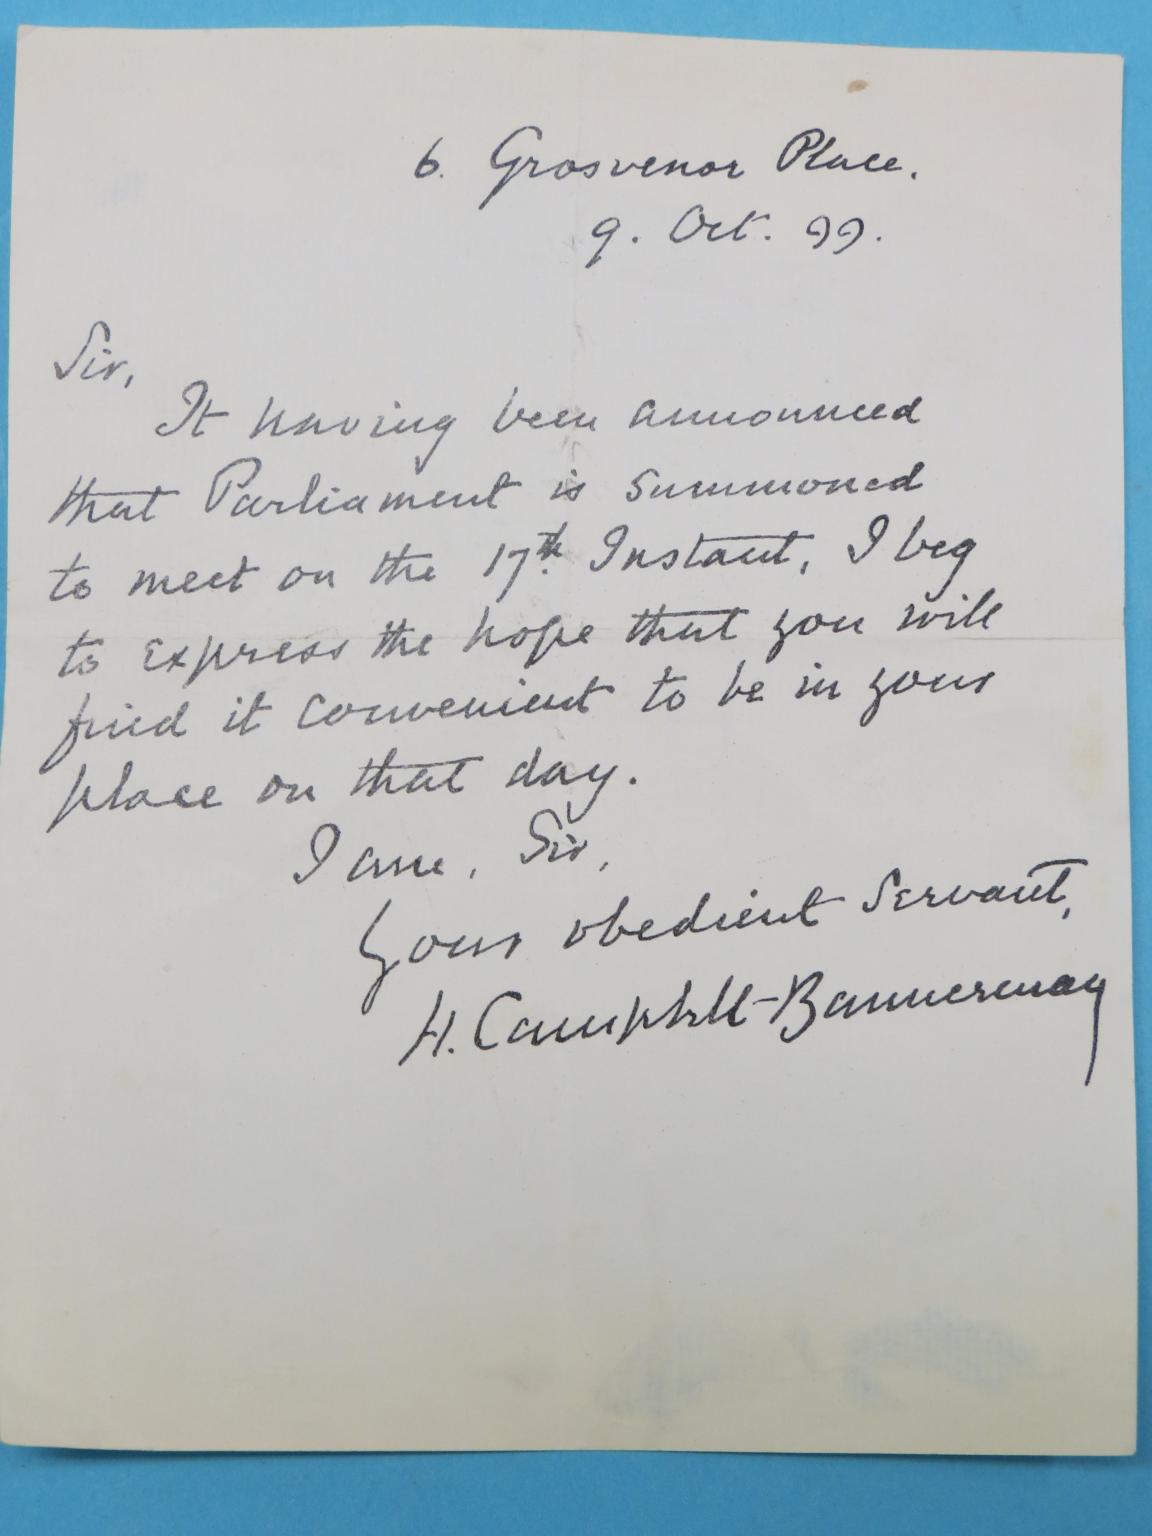 6. Grosvenor Place.
9. Oct. 99.
Sir,
It having been announced
that Parliament is summoned
to meet on the 17th. Instant, I beg
to express the hope that you will
find it convenient to be in your
place on that day.
I am, Sir,
Your obedient Servant,
H. Campbell-Bannerman